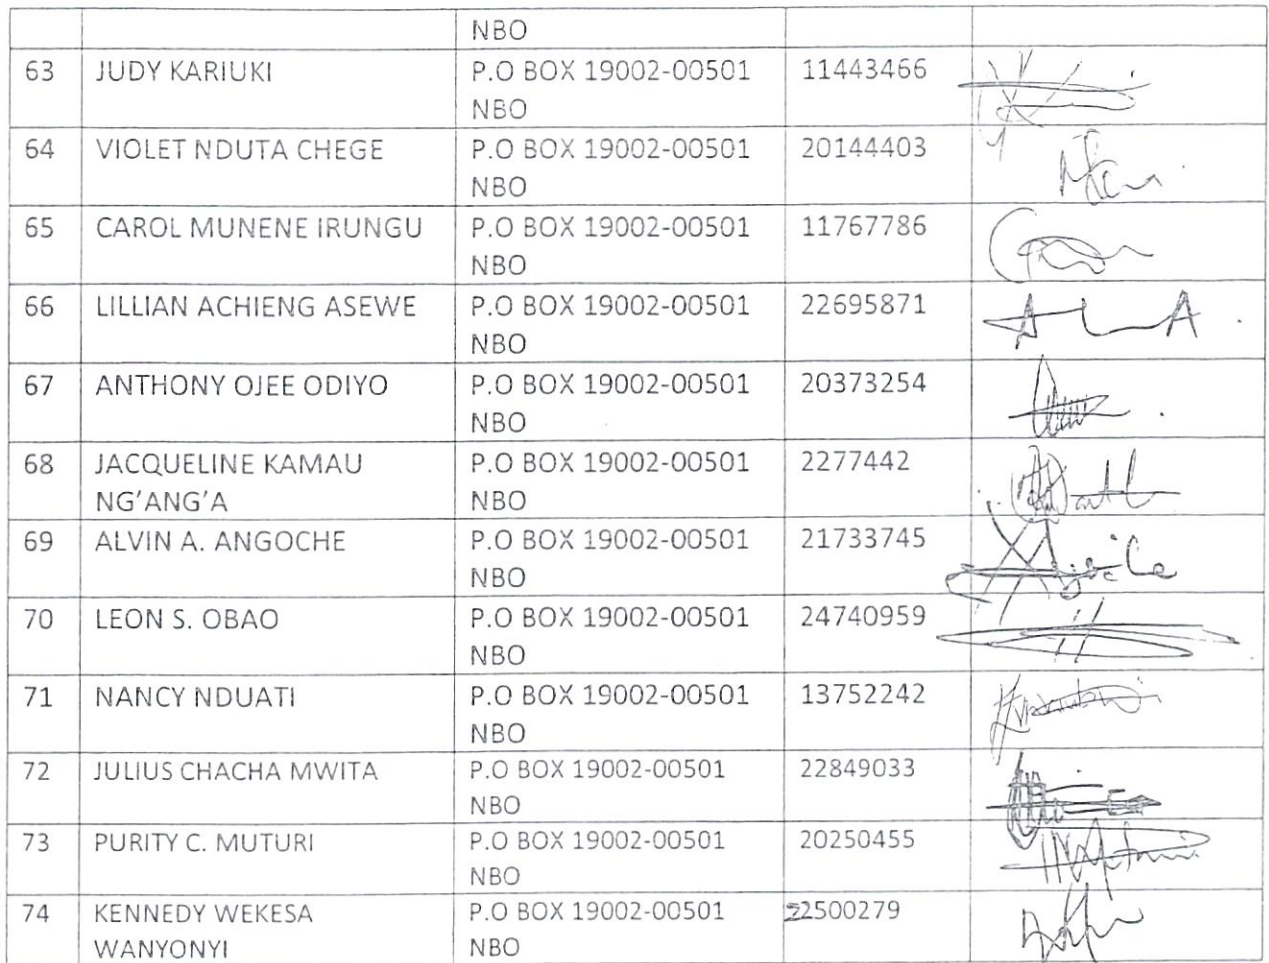 NBO
63 JUDY KARIUKI P.O BOX 19002-00501 11443466
NBO
64 VIOLET NDUTA CHEGE P.O BOX 19002-00501 20144403
NBO
65 CAROL MUNENE IRUNGU P.O BOX 19002-00501 11767786
NBO
66 LILLIAN ACHIENG ASEWE P.O BOX 19002-00501 22695871
NBO
67 ANTHONY OJEE ODIYO P.O BOX 19002-00501 20373254
NBO
68 JACQUELINE KAMAU P.O BOX 19002-00501 2277442
NG'ANG'A NBO
69 ALVIN A. ANGOCHE P.O BOX 19002-00501 21733745
NBO
70 LEON S. OBAO P.O BOX 19002-00501 24740959
NBO
71 NANCY NDUATI P.O BOX 19002-00501 13752242
NBO
72 JULIUS CHACHA MWITA P.O BOX 19002-00501 22849033
NBO
73 PURITY C. MUTURI P.O BOX 19002-00501 20250455
NBO
74 KENNEDY WEKESA P.O BOX 19002-00501 22500279
WANYONYI NBO